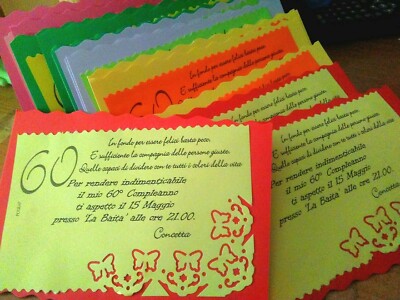 In fondo per essere felici basta poco.
E sufficiente la compagnia delle persone giuste.
Quelle capaci di dividere con te tutti i colori della vita.
60
Per rendere indimenticabile
il mio 60° Compleanno
ti aspetto il 15 Maggio
presso "La Baita" alle ore 21.00.
Concetta
In fondo per essere felici basta poco.
E sufficiente la compagnia delle persone giuste.
60
In fondo per essere felici basta poco.
E sufficiente la compagnia delle persone giuste.
Quelle capaci di dividere con te tutti i colori della vita.
Per rendere indimenticabile
il mio 60° Compleanno
ti aspetto il 15 Maggio
presso "La Baita" alle ore 21.00.
Concetta